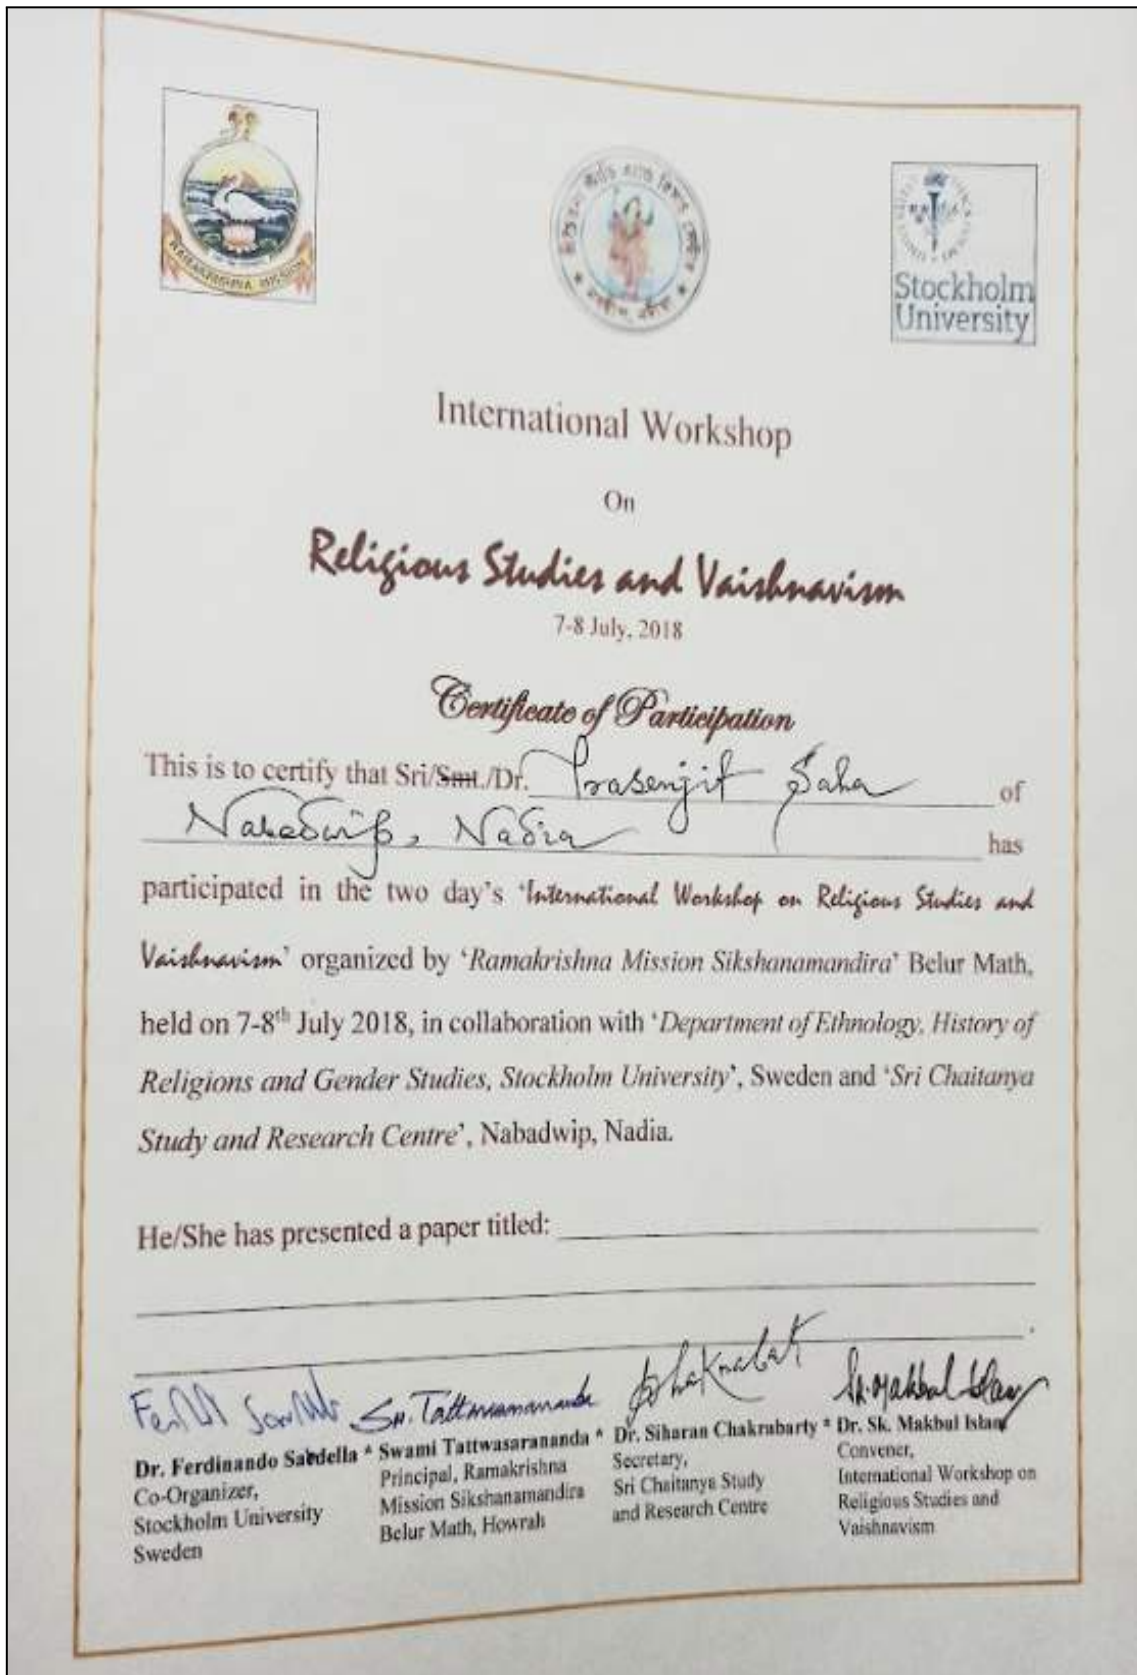 RAMAKRISHNA MISSION
Stockholm
University
International Workshop
On
Religious Studies and Vaishnavism
7-8 July, 2018
Certificate of Participation
This is to certify that Sri/Smt./Dr. Prasenjit Saha of
Nabadwip, Nadia has
participated in the two day's 'International Workshop on Religious Studies and
Vaishnavism' organized by 'Ramakrishna Mission Sikshanamandira' Belur Math,
held on 7-8th July 2018, in collaboration with 'Department of Ethnology, History of
Religions and Gender Studies, Stockholm University', Sweden and 'Sri Chaitanya
Study and Research Centre', Nabadwip, Nadia.
He/She has presented a paper titled:
Sw. Tattwasarananda
Sk. Makbul Islam
Dr. Ferdinando Sardella * Swami Tattwasarananda * Dr. Siharan Chakrabarty * Dr. Sk. Makbul Islam
Co-Organizer,
Stockholm University
Sweden
Principal, Ramakrishna
Mission Sikshanamandira
Belur Math, Howrah
Secretary,
Sri Chaitanya Study
and Research Centre
Convener,
International Workshop on
Religious Studies and
Vaishnavism